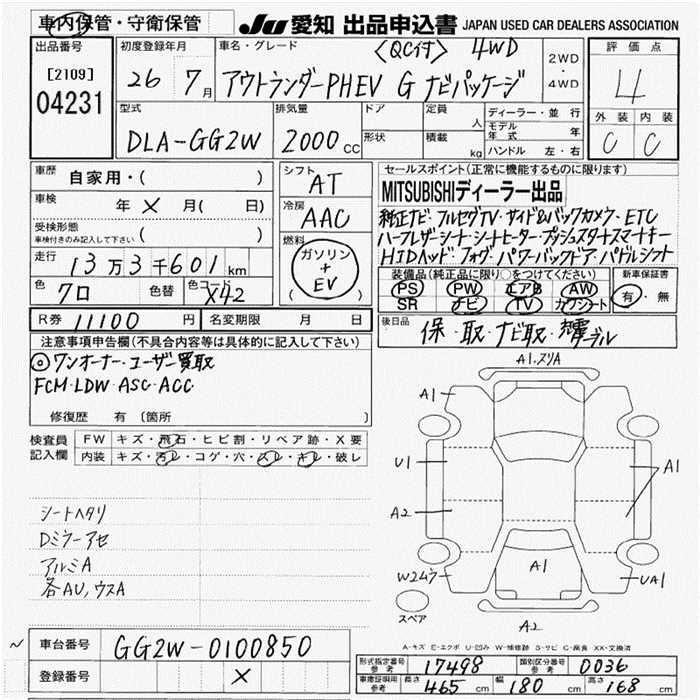 車内保管・守衛保管
JU 愛知 出品申込書 JAPAN USED CAR DEALERS ASSOCIATION
出品番号
[2109]
04231
初度登録年月
26 7月
車名・グレード
〈QC付〉 4WD
アウトランダーPHEV G ナビパッケージ
2WD
・
4WD
評価点
4
外装 内装
C C
型式
DLA-GG2W
排気量
2000 CC
ドア
形状
定員 人
積載 kg
ディーラー・並行
モデル年式 年
ハンドル 左・右
車歴
自家用・( )
車検
年 × 月( 日)
受検形態
車検付きのみ記入して下さい ( )
走行
13万3千601km
色
クロ
色替
色コード
X42
シフト
AT
冷房
AAC
燃料
ガソリン
+
EV
( )
セールスポイント(正常に機能するものに限ります)
MITSUBISHIディーラー出品
純正ナビ・フルセグTV・サイド&バックカメラ・ETC
ハーフレザーシート・シートヒーター・プッシュスタートスマートキー
HIDヘッド・フォグ・パワーバックドア・パドルシフト
装備品(純正品に限り○をつけてください)
PS PW エアB AW
SR ナビ TV カワシート
新車保証書
有・無
R券 11100 円
名変期限 月 日
後日品
保・取・ナビ取・
注意事項申告欄(不具合内容等は具体的に記入して下さい)
◎ワンオーナー・ユーザー買取
FCM・LDW・ASC・ACC
修復歴 有 〔箇所 〕
検査員
記入欄
FW キズ・飛石・ヒビ割・リペア跡・X要
内装 キズ・汚レ・コゲ・穴・スレ・キレ・破レ
シートヘタリ
Dミラーアセ
アルミA
各AU,ウスA
A1.スリA
A1
U1
A1
A2
A1
W2ムラ
UA1
スペア
A2
A-キズ E-エクボ U-凹み W-補修跡 S-サビ C-腐食 XX-交換済
~
車台番号 GG2W-0100850
登録番号 ×
形式指定番号
参考
17498
類別区分番号
参考
0036
車庫証明用
参考
長さ 465 cm 幅 180 cm 高さ 168 cm